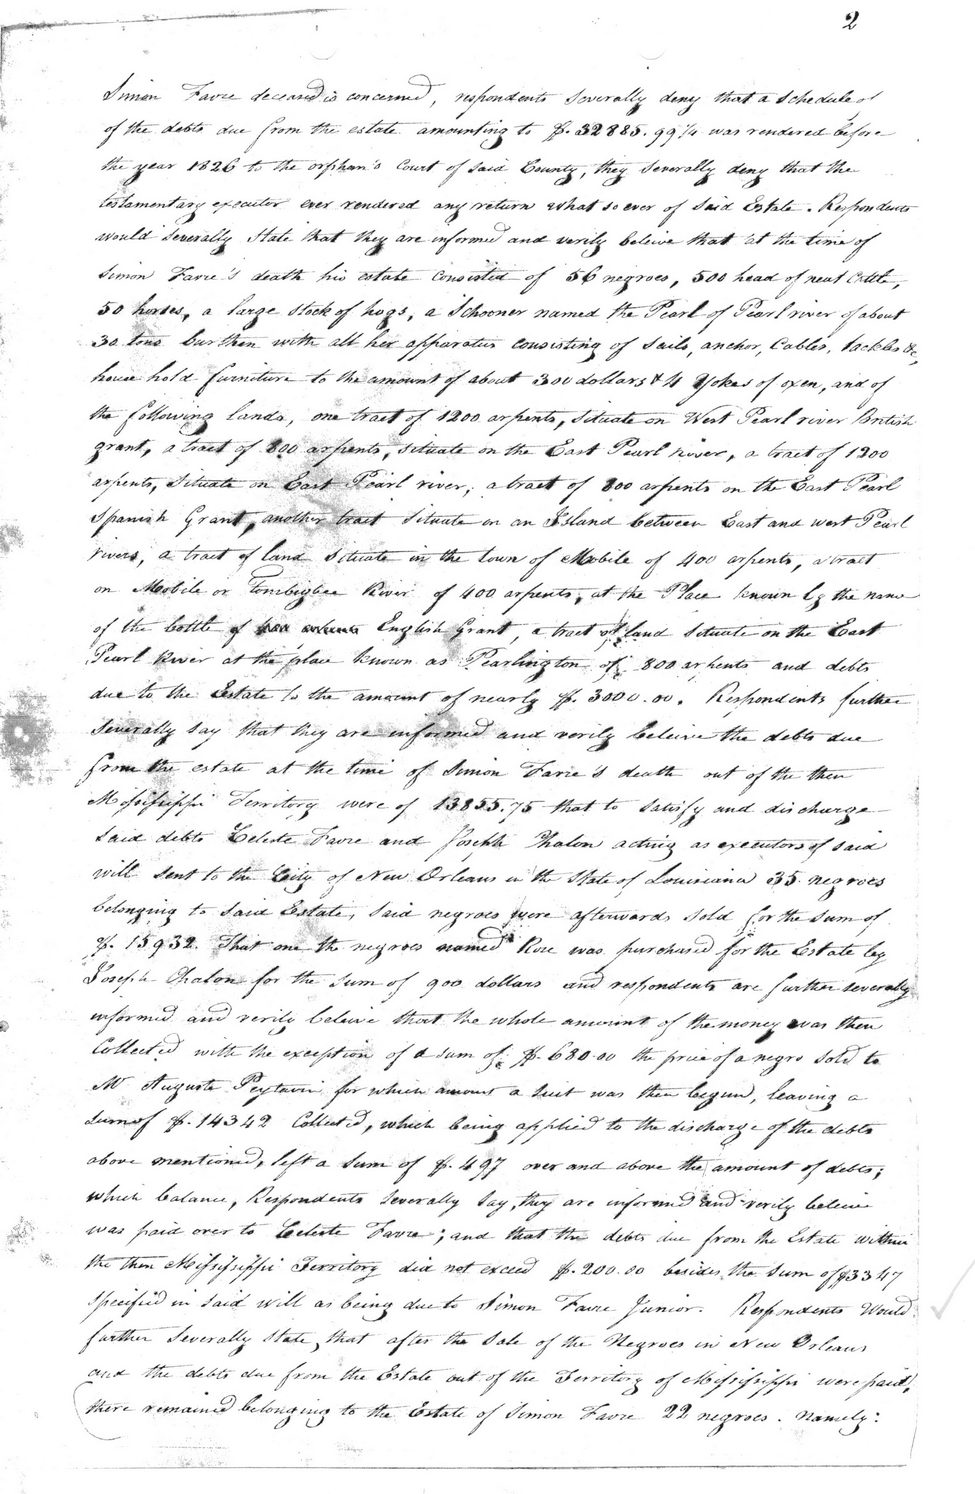 2
Simon Favre deceased is concerned, respondents severally deny that a schedule of
of the debts due from the estate amounting to $. 32885.99¼ was rendered before
the year 1826 to the orphan's Court of said County, they severally deny that the
testamentary executor ever rendered any return what so ever of said Estate. Respondents
would severally State that they are informed and verily beleive that at the time of
Simon Favre's death his estate consisted of 56 negroes, 500 head of neat Cattle,
50 horses, a large stock of hogs, a Schooner named the Pearl of Pearl river of about
30 tons burthen with all her apparatus consisting of Sails, anchor, Cables, tackles &c,
house hold furniture to the amount of about 300 dollars & 4 Yokes of oxen, and of
the following lands, one tract of 1200 arpents, situate on West Pearl river British
grant, a tract of 800 arpents, situate on the East Pearl River, a tract of 1200
arpents, situate on East Pearl river, a tract of 800 arpents on the East Pearl
Spanish Grant, another tract situate on an Island between East and west Pearl
rivers, a tract of land situate in the town of Mobile of 400 arpents, a tract
on Mobile or Tombigbee River of 400 arpents, at the Place known by the name
of the bottle of English Grant, a tract of land situate on the East
Pearl River at the place known as Pearlington of 800 arpents and debts
due to the Estate to the amount of nearly $. 3000.00. Respondents further
severally say that they are informed and verily beleive the debts due
from the estate at the time of Simon Favre's death out of the then
Mississippi Territory were of 13855.75 that to satisfy and discharge
said debts Celeste Favre and Joseph Chalon acting as executors of said
will sent to the City of New Orleans in the State of Louisiana 35 negroes
belonging to said Estate, said negroes were afterwards sold for the sum of
$. 15932. That one the negroes named Rose was purchased for the Estate by
Joseph Chalon for the sum of 900 dollars and respondents are further severally
informed and verily beleive that the whole amount of the money was then
Collected with the exception of a sum of $. 680.00 the price of a negro sold to
Mr Auguste Peytavin for which amount a suit was then begun, leaving a
sum of $. 14342 Collected, which being applied to the discharge of the debts
above mentioned, left a sum of $. 497 over and above the amount of debts;
which balance, Respondents severally say, they are informed and verily beleive
was paid over to Celeste Favre; and that the debts due from the Estate within
the then Mississippi Territory did not exceed $. 200.00 besides the sum of $3347
specified in said will as being due to Simon Favre Junior. Respondents Would
further severally state, that after the sale of the Negroes in New Orleans
and the debts due from the Estate out of the Territory of Mississippi were paid,
there remained belonging to the Estate of Simon Favre 22 negroes. Namely: